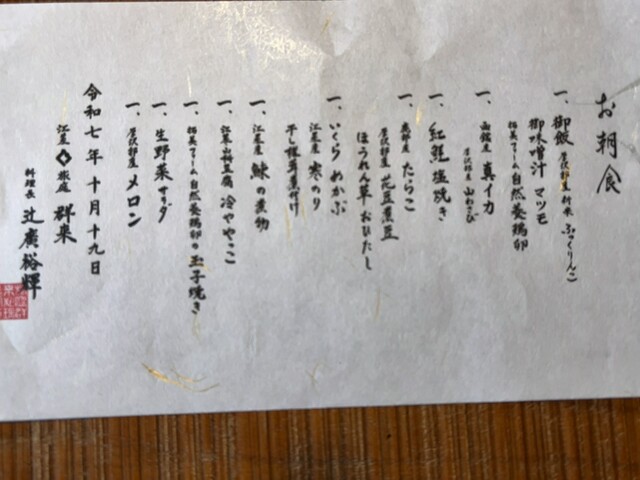 お朝食
一、御飯 厚沢部産 新米 ふっくりんこ
御味噌汁 マツモ
拓美ファーム自然養鶏卵
一、函館産 真イカ
厚沢部産 山わさび
一、紅鮭塩焼き
一、鹿部産 たらこ
厚沢部産 花豆煮豆
ほうれん草おひたし
一、いくらめかぶ
江差産 寒のり
干し椎茸煮付け
一、江差産 鰊の煮物
一、江差 豆腐 冷ややっこ
一、拓美ファーム自然養鶏卵の玉子焼き
一、生野菜サラダ
一、厚沢部産 メロン
令和七年十月十九日
江差 旅庭 群来
料理長 辻廣裕輝